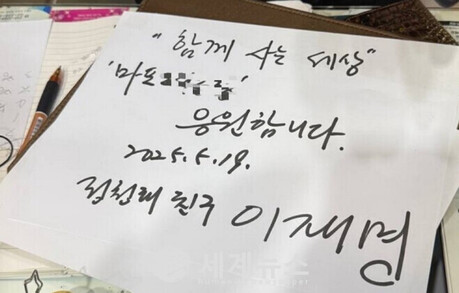 "함께 사는 세상"
'마포
응원합니다.
2025.5.19.
정청래 친구 이재명
세계뉴스